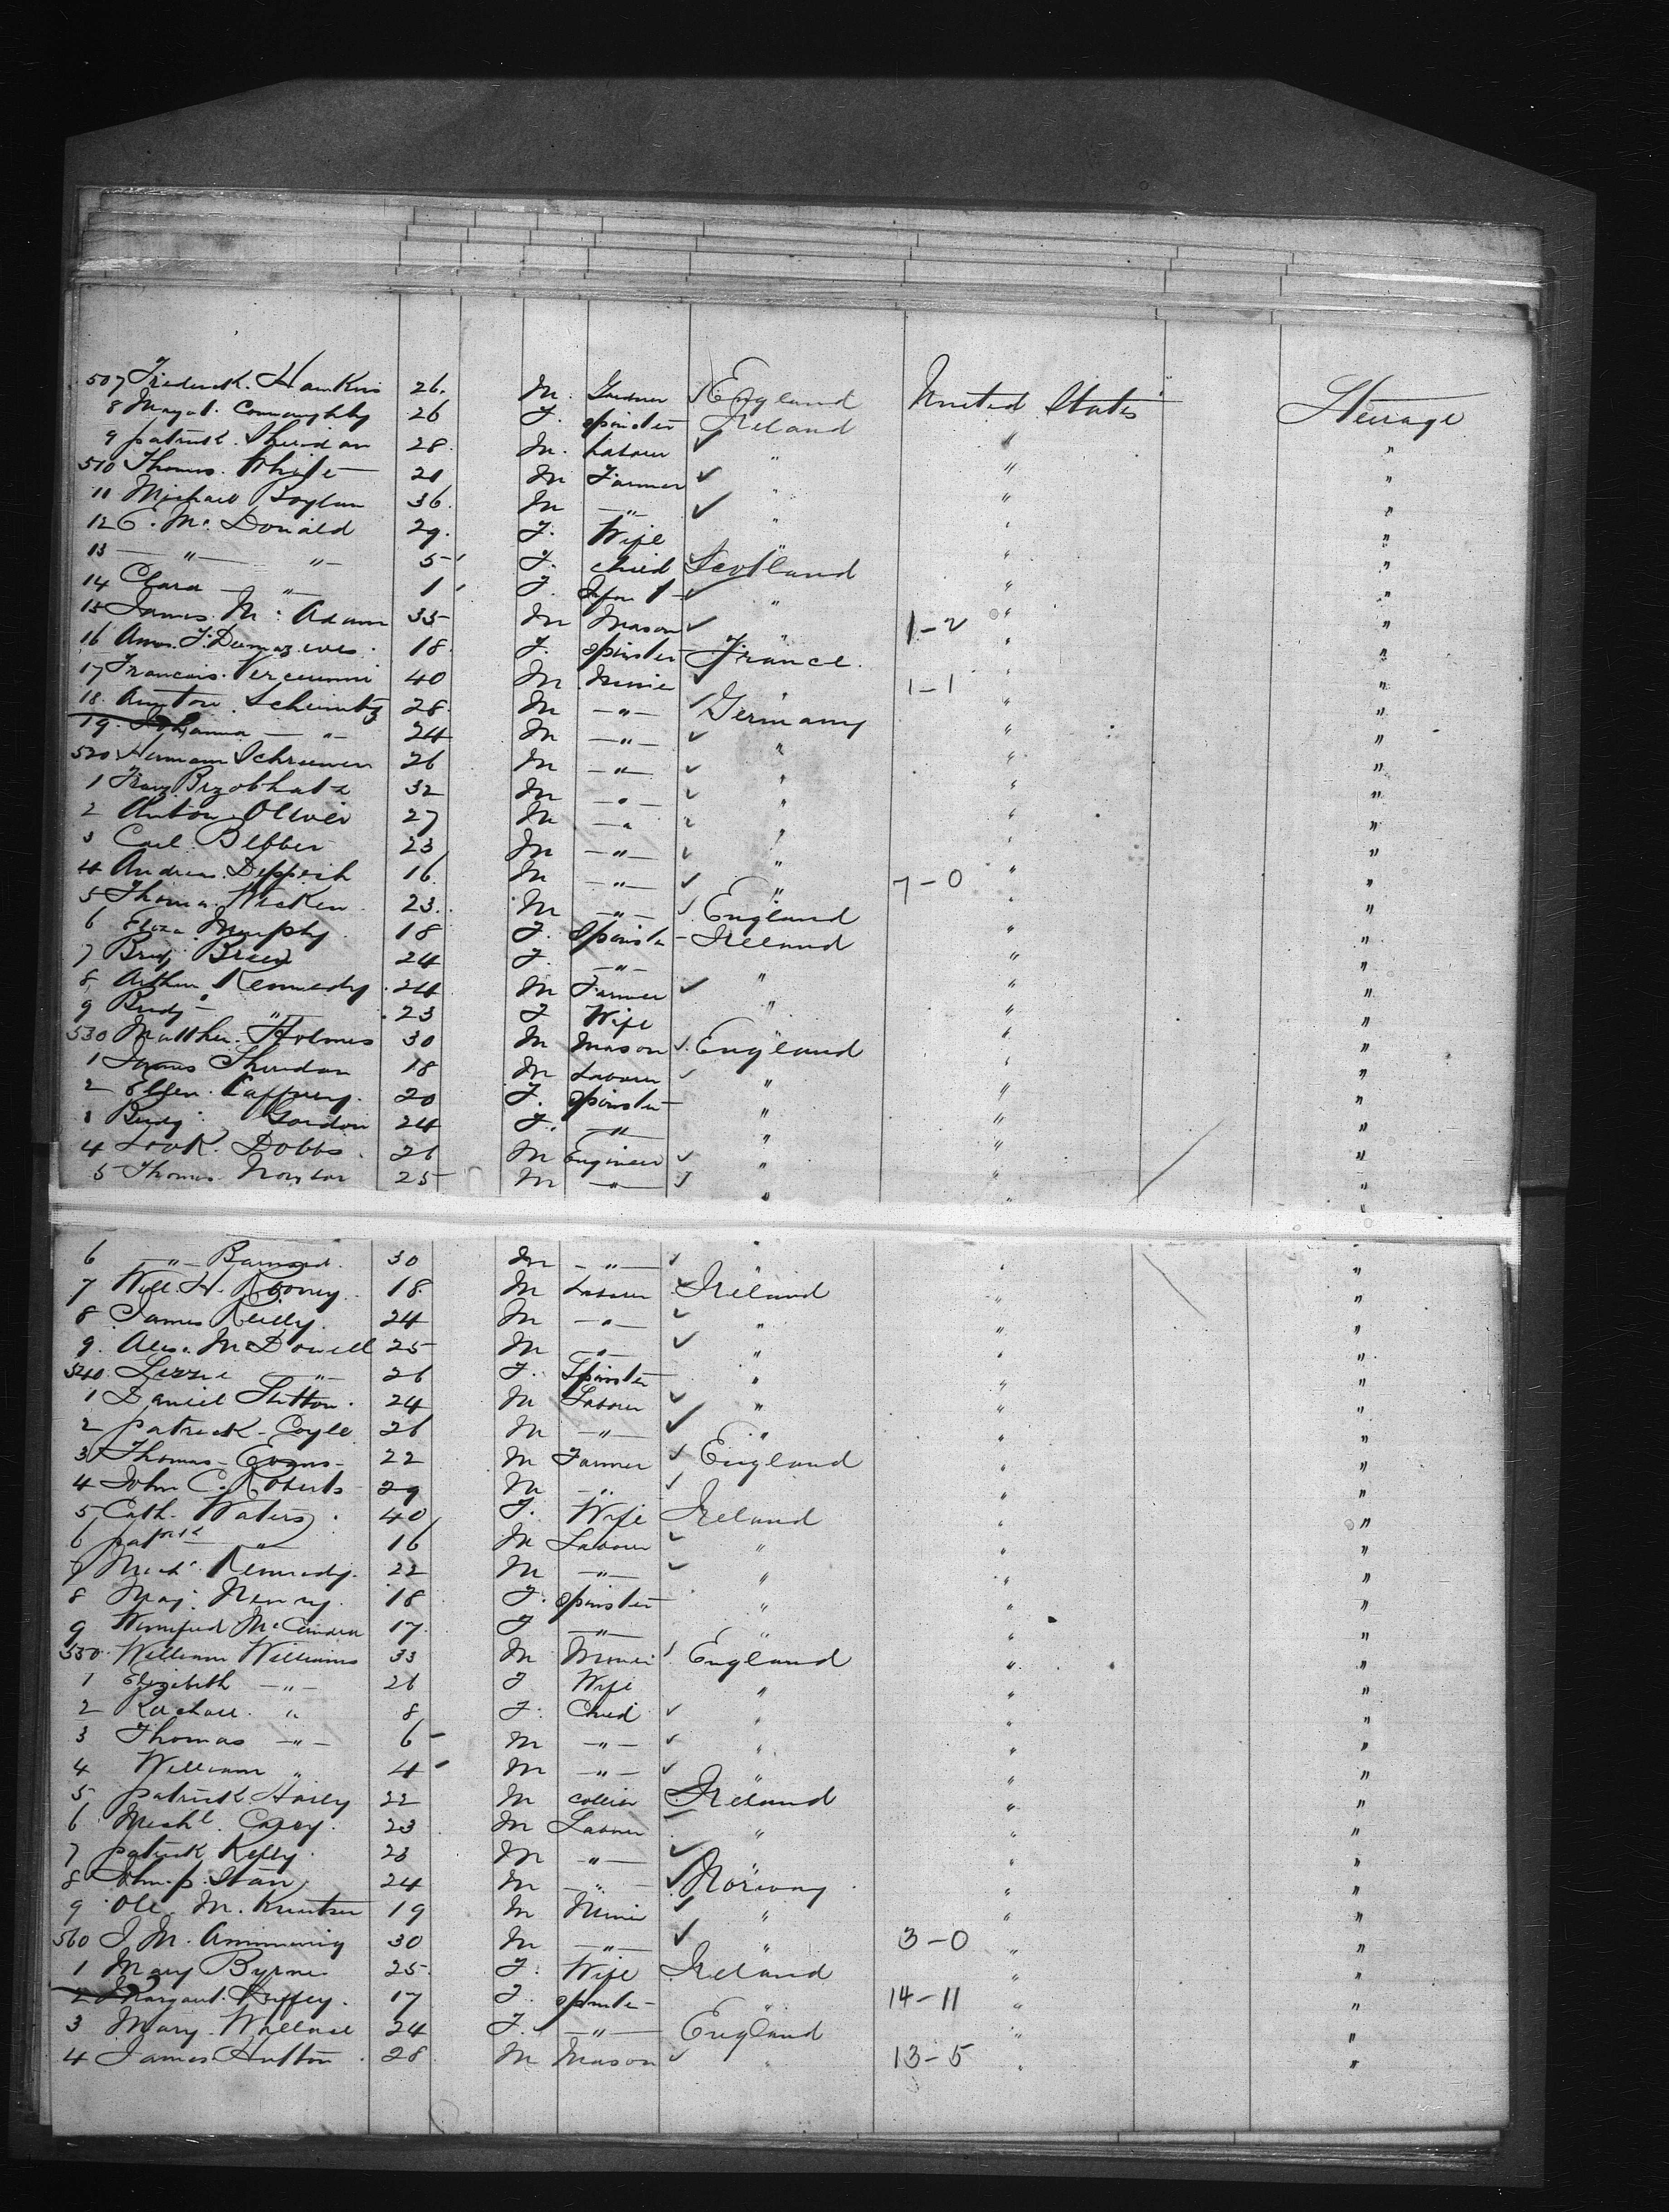 507 Frederick. Hawkins 26. M. Gardner ✓ England United States Steerage
8 Margt. Connaughty 26 F. Spinster Ireland " "
9 patrick. Sheridan 28. M. Labourer ✓ " " "
510 Thomas. White 21 M Farmer ✓ " " "
11 Michael Boylan 36. M —"— ✓ " " "
12 C. Mc. Donald 29. F. Wife " " "
13 —"— —"— 5 F. child Scotland " "
14 Clara —"— 1 F. Infant ✓ " " "
15 James. Mc. Adam 35 M Mason ✓ " 1-2 " "
16 18. F. Spinster France. " "
17 Francois. 40 M. Miner ✓ " 1-1 " "
18. Anton. Schimitz 28. M —"— ✓ Germany " "
19. Johanna —"— 24 M —"— ✓ " " "
520 Hermann 26 M —"— ✓ " " "
1 Franz 32 M —"— ✓ " " "
2 Anton. Olivier 27 M —"— ✓ " " "
3 Carl. Blffer 23 M —"— ✓ " " "
4 Andreas. Deppisch 16. M —"— ✓ " 7-0 " "
5 Thomas. Wicken 23. M —"— ✓ England " "
6 Eliza Murphy 18 F. Spinster Ireland " "
7 Bridj. Breen 24 F. —"— " " "
8 Arthur Kennedy 24 M Farmer ✓ " " "
9 Bridj. " 23 F Wife " "
530 Matthew. Holmes 30 M Mason ✓ England " "
1 James Sheridan 18 M Labourer ✓ " " "
2 Ellen. Caffrey. 20 F. Spinster " " "
3 Bridj. Gordon 24 F. —"— " " "
4 Dobbs. 26 M Engineer ✓ " " "
5 Thomas 25 M —"— ✓ " " "
6 —"— Barnard. 30 M —"— ✓ " " "
7 Will. H. Rooney. 18. M Labourer ✓ Ireland " "
8 James Reilly. 24 M —"— ✓ " " "
9. Alex. McDowell 25 M —"— ✓ " " "
540 Lizzie —"— 26 F. Spinster " " "
1 Daniel Sutton. 24 M Labourer ✓ " " "
2 patrick. Coyle 26 M —"— ✓ " " "
3 Thomas. Evans 22 M Farmer ✓ England " "
4 John C. Roberts 29 M —"— ✓ " "
5 Cath. Waters. 40 F. Wife Ireland " "
6 patrick —"— 16 M Labourer ✓ " " "
7 Michl. Kennedy. 22 M —"— ✓ " " "
8 Henry. 18 F. Spinster " " "
9 Winnifred 17. F —"— " " "
550. William Williams 33 M Miner ✓ England " "
1 Elizabeth —"— 26 F Wife " " "
2 Rachael. " 8 F. Child ✓ " " "
3 Thomas —"— 6 M —"— ✓ " " "
4 William " 4 M —"— ✓ " " "
5 patrick. 22 M Collier Ireland " "
6 Michl. Casey. 23 M Labourer " " "
7 patrick Kelly. 23 M —"— ✓ " " "
8 John. p. Stan 24 M —"— ✓ Norway " "
9 Ole. M. Knutsen 19 M Miner ✓ " " "
560 J. M. 30 M —"— ✓ " 3-0 " "
1 Mary Byrne. 25. F. Wife Ireland " "
2 Margaret. Duffey. 17 F. Spinster " 14-11 " "
3 Mary. Wallace 24 F. —"— England " "
4 James Hutton. 28 M Mason ✓ " 13-5 " "